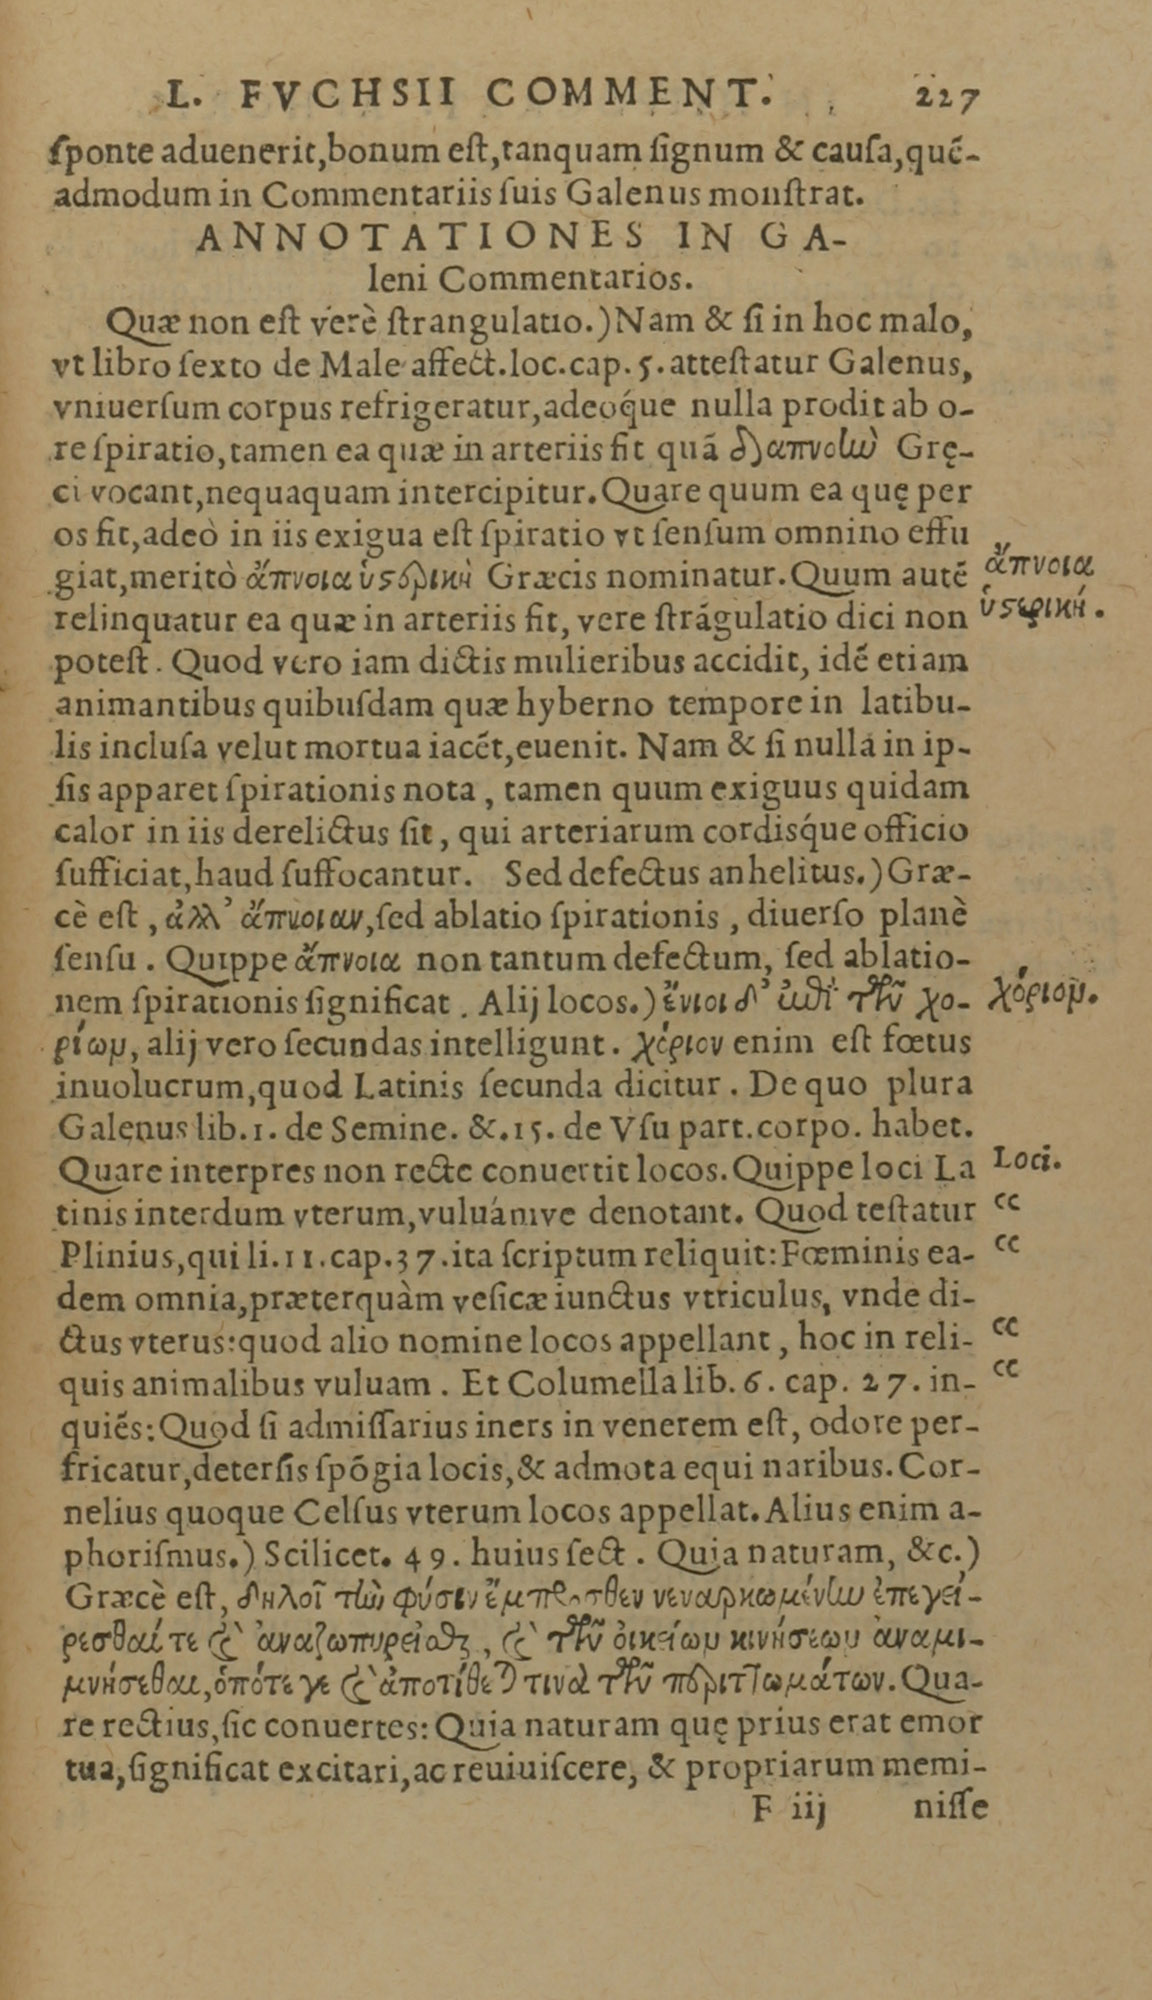 L. FVCHSII COMMENT. 227
sponte aduenerit, bonum est, tanquam signum & causa, quẽ-
admodum in Commentariis suis Galenus monstrat.
ANNOTATIONES IN GA-
leni Commentarios.
Quæ non est verè strangulatio.) Nam & si in hoc malo,
vt libro sexto de Male affect. loc. cap. 5. attestatur Galenus,
vniuersum corpus refrigeratur, adeoq́ue nulla prodit ab o-
re spiratio, tamen ea quæ in arteriis fit quã διαπνοὴν Grę-
ci vocant, nequaquam intercipitur. Quare quum ea quę per
os fit, adeò in iis exigua est spiratio vt sensum omnino effu
giat, meritò ἄπνοια ὑστερικὴ Græcis nominatur. Quum autẽ
ἄπνοια
relinquatur ea quæ in arteriis fit, vere strãgulatio dici non
ὑστερική.
potest. Quod vero iam dictis mulieribus accidit, idẽ etiam
animantibus quibusdam quæ hyberno tempore in latibu-
lis inclusa velut mortua iacẽt, euenit. Nam & si nulla in ip-
sis apparet spirationis nota, tamen quum exiguus quidam
calor in iis derelictus sit, qui arteriarum cordisq́ue officio
sufficiat, haud suffocantur. Sed defectus anhelitus.) Græ-
cè est, ἀλλ' ἄπνοιαν, sed ablatio spirationis, diuerso planè
sensu. Quippe ἄπνοια non tantum defectum, sed ablatio-
nem spirationis significat. Alij locos.) ἔνιοι δ' ἐπὶ τῶν χο-
χόριομ.
ρίωμ, alij vero secundas intelligunt. χόριον enim est fœtus
inuolucrum, quod Latinis secunda dicitur. De quo plura
Galenus lib. 1. de Semine. &. 15. de Vsu part. corpo. habet.
Quare interpres non recte conuertit locos. Quippe loci La
Loci.
tinis interdum vterum, vuluámve denotant. Quod testatur
cc
Plinius, qui li. 11. cap. 37. ita scriptum reliquit: Fœminis ea-
cc
dem omnia, præterquàm vesicæ iunctus vtriculus, vnde di-
ctus vterus: quod alio nomine locos appellant, hoc in reli-
cc
quis animalibus vuluam. Et Columella lib. 6. cap. 27. in-
cc
quiẽs: Quod si admissarius iners in venerem est, odore per-
fricatur, detersis spõgia locis, & admota equi naribus. Cor-
nelius quoque Celsus vterum locos appellat. Alius enim a-
phorismus.) Scilicet. 49. huius sect. Quia naturam, &c.)
Græcè est, δηλοῖ τὴν φύσιν ἔμπροσθεν νεναρκωμένην ἐπεγεί-
ρεσθαί τε καὶ ἀναζωπυρεῖσθαι, καὶ τῶν οἰκείωμ κινήσεωμ ἀναμι-
μνήσεθαι, ὁπότε γε καὶ ἀποτίθεται τινὰ τῶν περιττωμάτων. Qua-
re rectius, sic conuertes: Quia naturam quę prius erat emor
tua, significat excitari, ac reuiuiscere, & propriarum memi-
F iij nisse